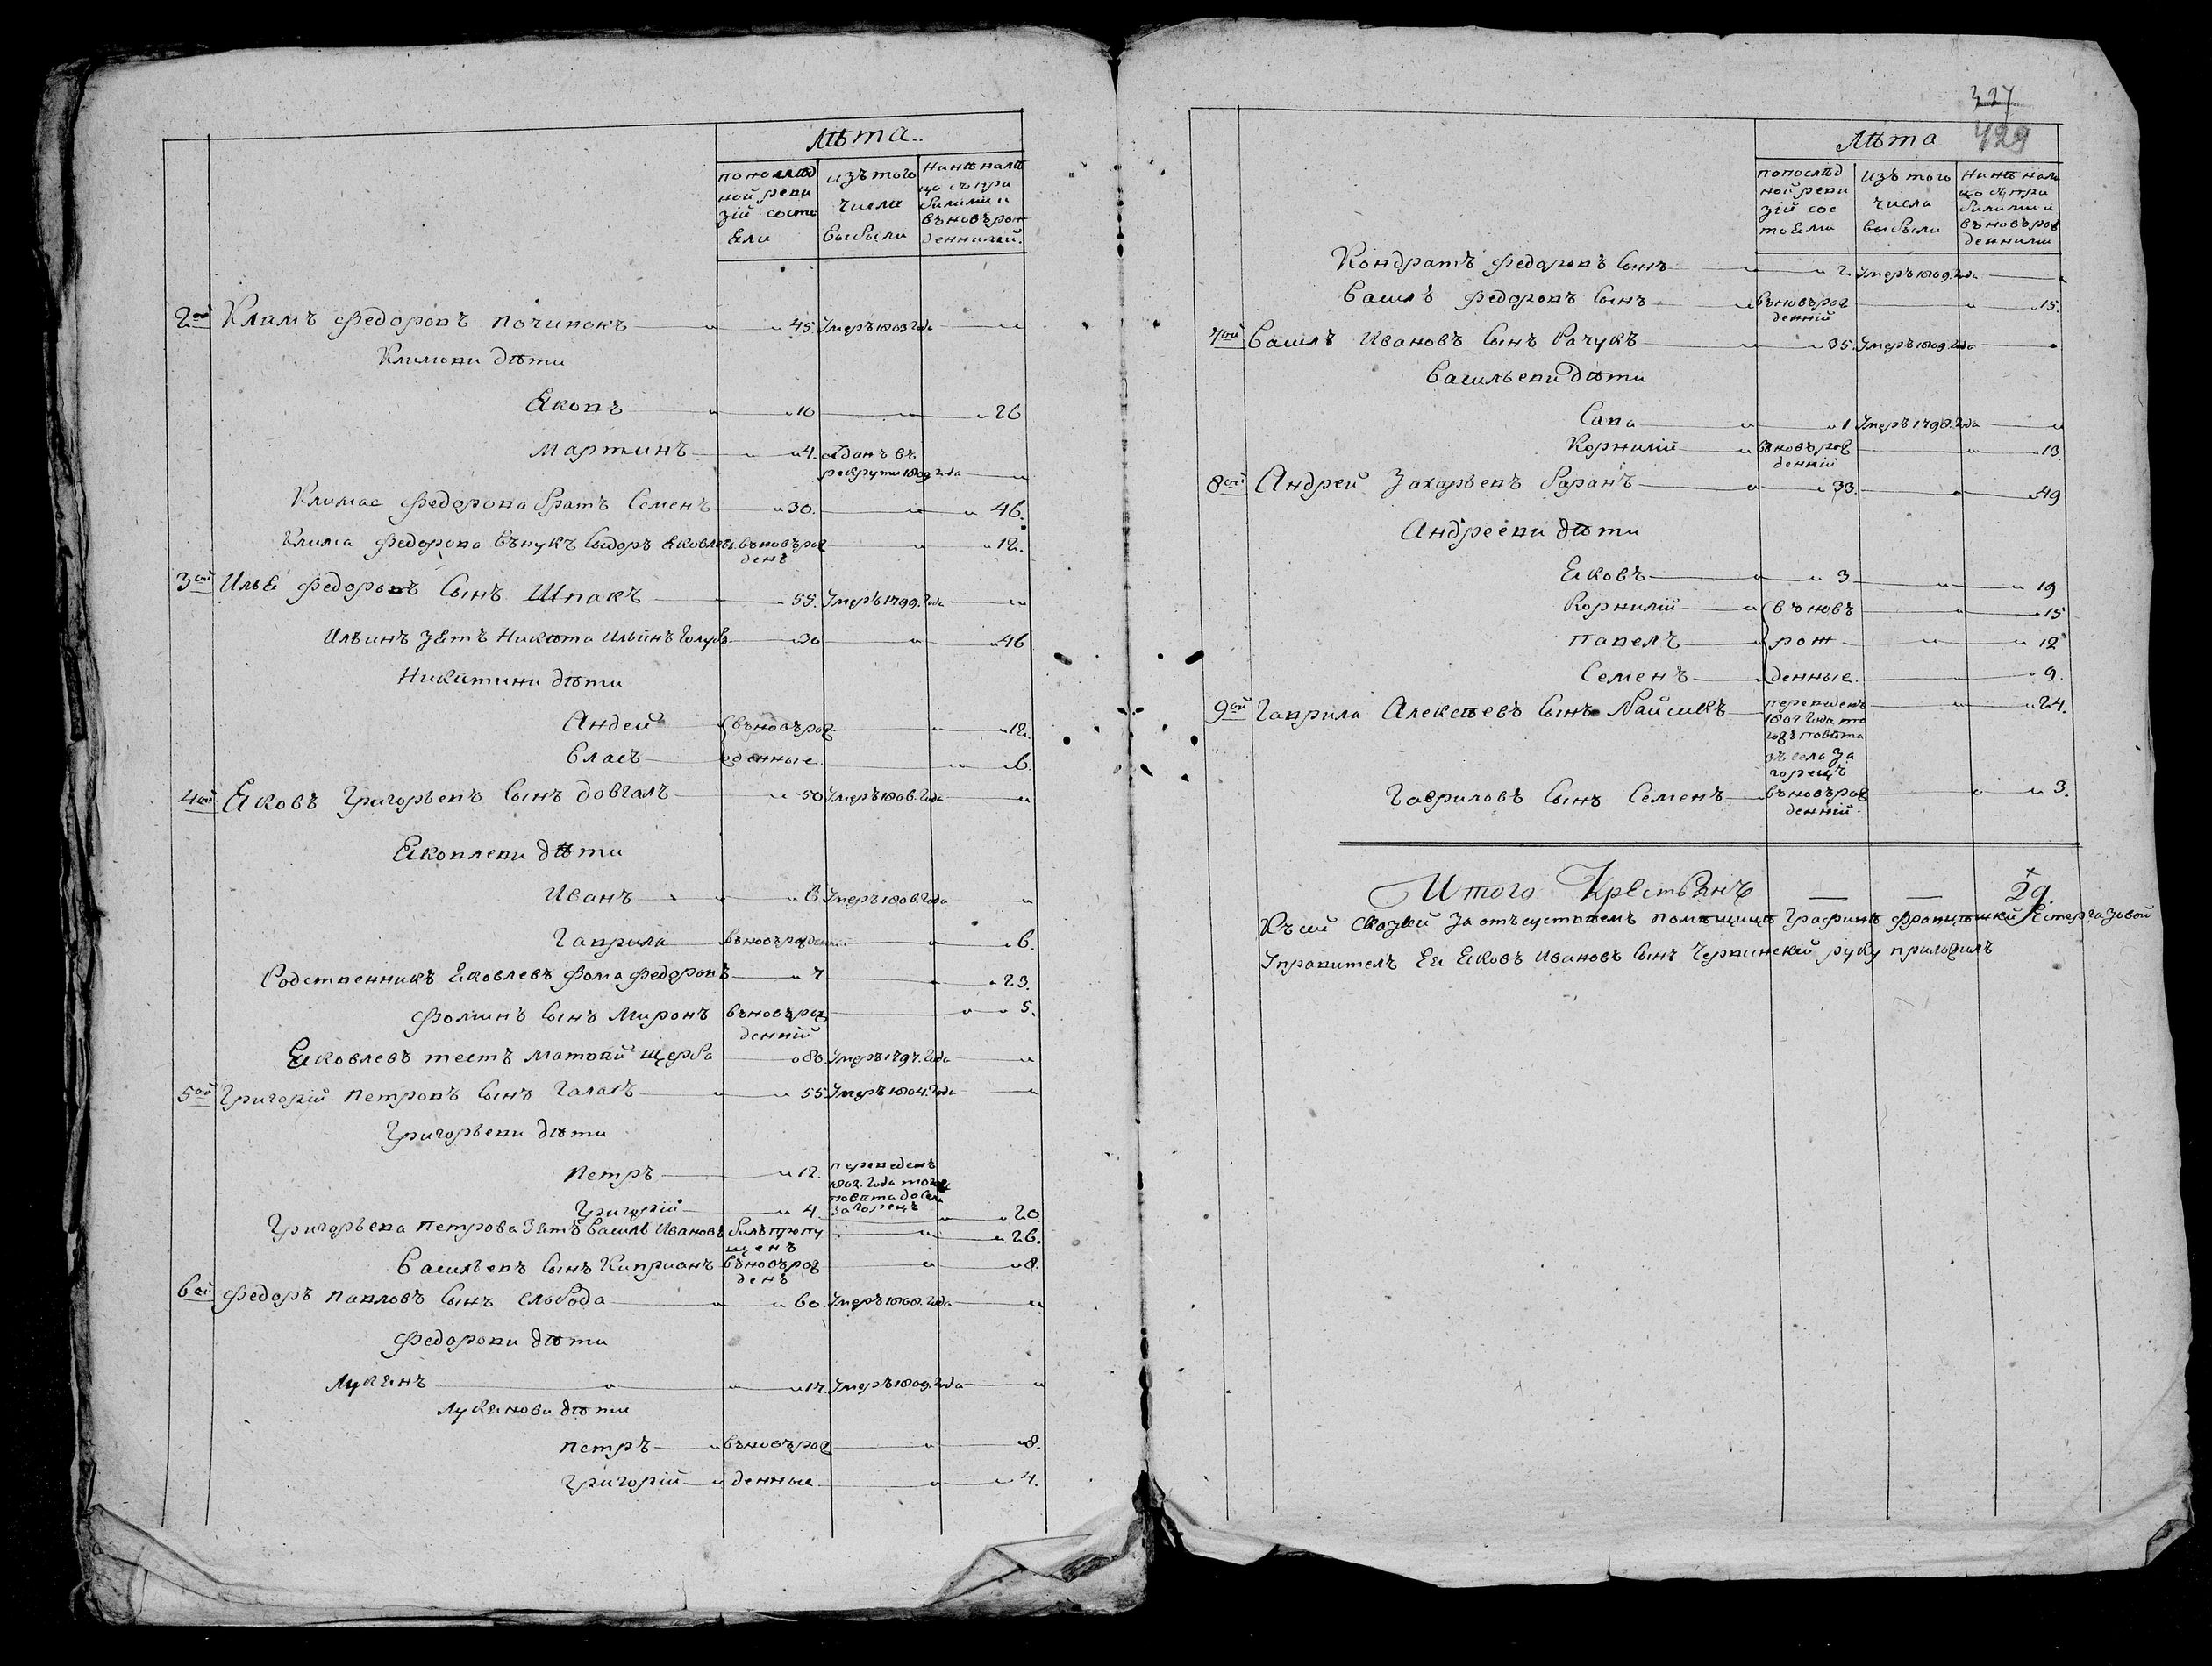 Лѣта..
попослѣд ной реви зій состо яли
изъ того числа выбыли
Нинѣ нали цо съ при билими и въновърож деннимы.
2ой Климъ Федоровъ Починокъ 45. Умеръ 1803 года
Климови дѣти
Яковъ 10 26
Мартинъ 4. отданъ въ рекрути 1809 года
Климас Федорова братъ Семенъ 30. 46.
Клима Федорова внукъ Сыдоръ Яковлевъ вновърож денъ 12.
3ой Илья Федоровъ сынъ Шпакъ 55. Умеръ 1799. года
Ильинъ зять Никита Ильинъ Голубъ 30 46
Никитини дѣти
Андей вновърож 12.
Власъ денные 6.
4ой Яковъ Григорьевъ сынъ Довгалъ 50 Умеръ 1806. года
Яковлеви дѣти
Иванъ 6 Умеръ 1806. года
Гаврила вновърожден 6.
Родственникъ Яковлевъ Фома Федоровъ 7 23.
Фоминъ сынъ Миронъ вновърож денній 5.
Яковлевъ тестъ Матвѣй Щерба 80. Умеръ 1797. года
5ой Григорій Петровъ сынъ Галасъ 55 Умеръ 1804. года
Григорьеви дѣти
Петръ 12. переведенъ 1802. года тогож повѣта до села Загорецъ
Григорій 4. 20.
Григорьева Петрова зять Василь Ивановъ билъ пропу щенъ 26.
Васильевъ сынъ Киприанъ вновърож денъ 8.
6ой Федоръ Павловъ сынъ Слобода 60. Умеръ 1808. года
Федорови дѣти
Лукянъ 17. Умеръ 1809. года
Лукянови дѣти
Петръ вновърож 8.
Григорій денные 4.
327
429
Лѣта
попослѣд ной реви зій сос тояли
изъ того числа выбыли
Нинѣ нали цо съ при билими и въновърож денними
Кондратъ Федоровъ сынъ 2 Умеръ 1809. года
Василъ Федоровъ сынъ вновърож денній 15.
7ой Василъ Ивановъ сынъ Рачукъ 35. Умеръ 1809. года
Васильеви дѣти
Сава 1 Умеръ 1798. года
Корнилій вновърож денній 13
8ой Андрей Захарьевъ Баранъ 33. 49
Андрееви дѣти
Яковъ 3 19
Корнилій вѣновъ 15
Павелъ рож 12
Семенъ денные. 9.
9ой Гаврила Алексѣевъ сынъ Майсикъ переведенъ 1807 года то гожъ повѣта зъ села За горецъ 24.
Гавриловъ сынъ Семенъ вновърож денній 3.
Итого Крестьянъ 29.
Къ сій сказкѣ за отъсуствіемъ помѣщицѣ Графинѣ Францишкѣ Естергазовой
Управитель Ея Яковъ Ивановъ сынъ Червинскій руку приложилъ